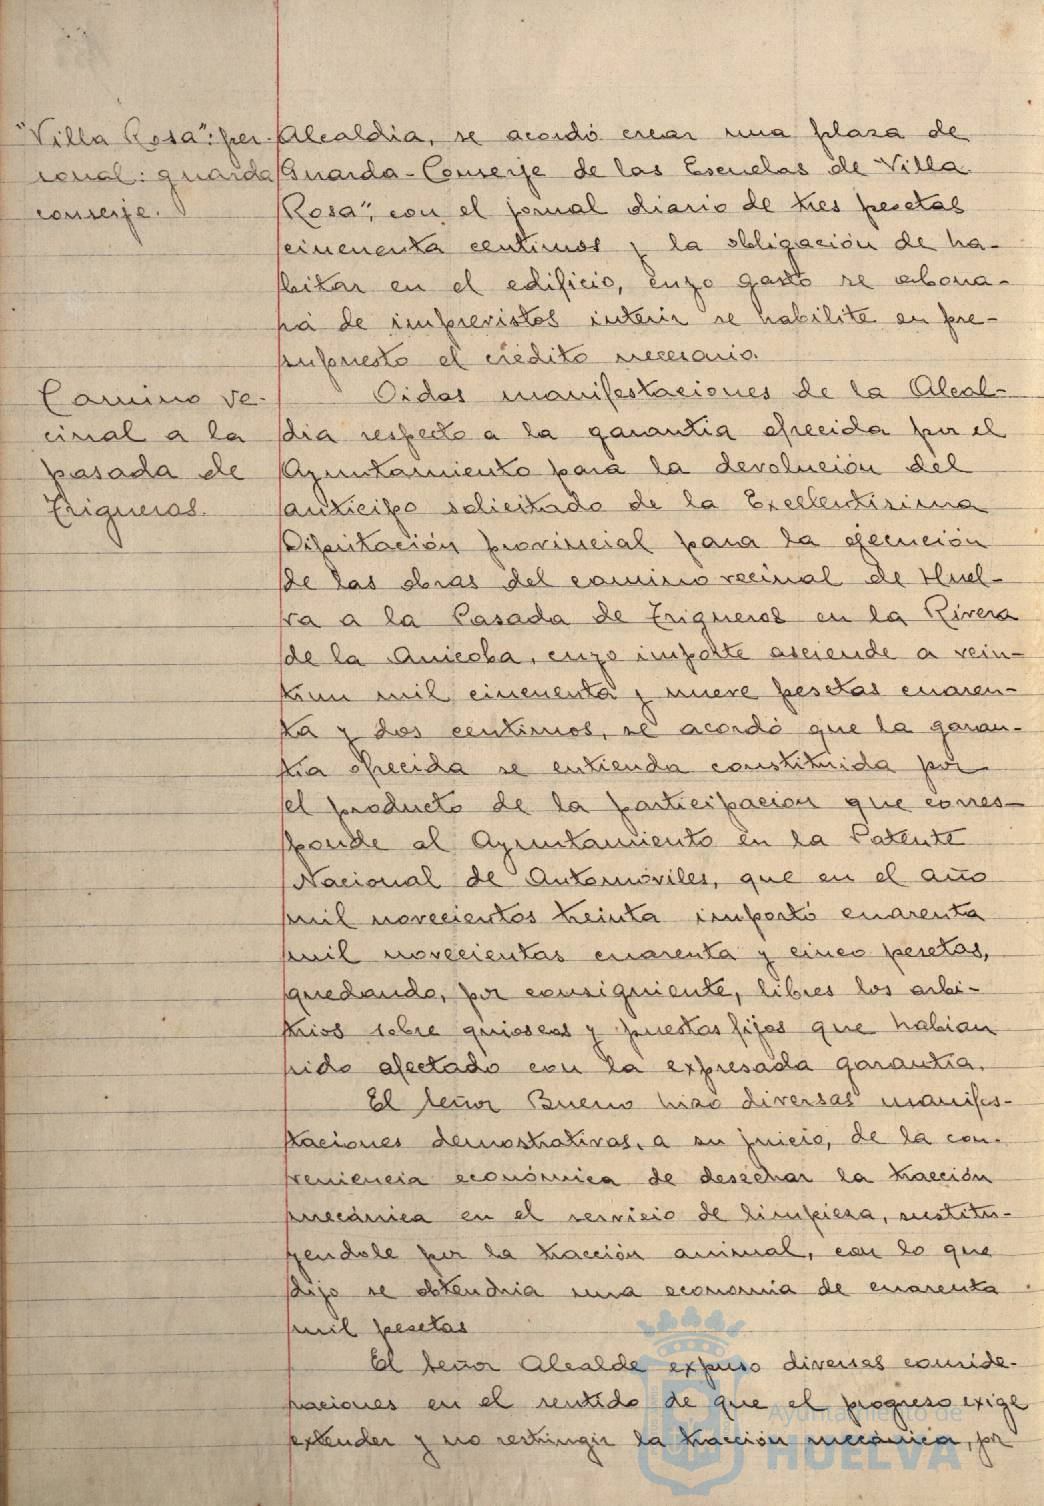 "Villa Rosa": per-
sonal: guarda
conserje.
Alcaldia, se acordó crear una plaza de
Guarda-Conserje de las Escuelas de "Villa
Rosa", con el jornal diario de tres pesetas
cincuenta centimos y la obligación de ha-
bitar en el edificio, cuyo gasto se abona-
rá de imprevistos interin se habilite en pre-
supuesto el crédito necesario.
Camino ve-
cinal a la
pasada de
Trigueros.
Oidas manifestaciones de la Alcal-
dia respecto a la garantia ofrecida por el
Ayuntamiento para la devolución del
anticipo solicitado de la Excelentisima
Diputación provincial para la ejecución
de las obras del camino vecinal de Huel-
va a la Pasada de Trigueros en la Rivera
de la Anicoba, cuyo importe asciende a vein-
tiun mil cincuenta y nueve pesetas cuaren-
ta y dos centimos, se acordó que la garan-
tia ofrecida se entienda constituida por
el producto de la participacion que corres-
ponde al Ayuntamiento en la Patente
Nacional de Automóviles, que en el año
mil novecientos treinta importó cuarenta
mil novecientas cuarenta y cinco pesetas,
quedando, por consiguiente, libres los arbi-
trios sobre quioscos y puestos fijos que habian
sido afectado con la expresada garantia.
El señor Bueno hizo diversas manifes-
taciones demostrativas, a su juicio, de la con-
veniencia económica de desechar la tracción
mecánica en el servicio de limpieza, sustitu-
yendole por la tracción animal, con lo que
dijo se obtendria una economia de cuarenta
mil pesetas
El señor Alcalde expuso diversas conside-
raciones en el sentido de que el progreso exige
extender y no restringir la tracción mecánica, por
Ayuntamiento de
HUELVA